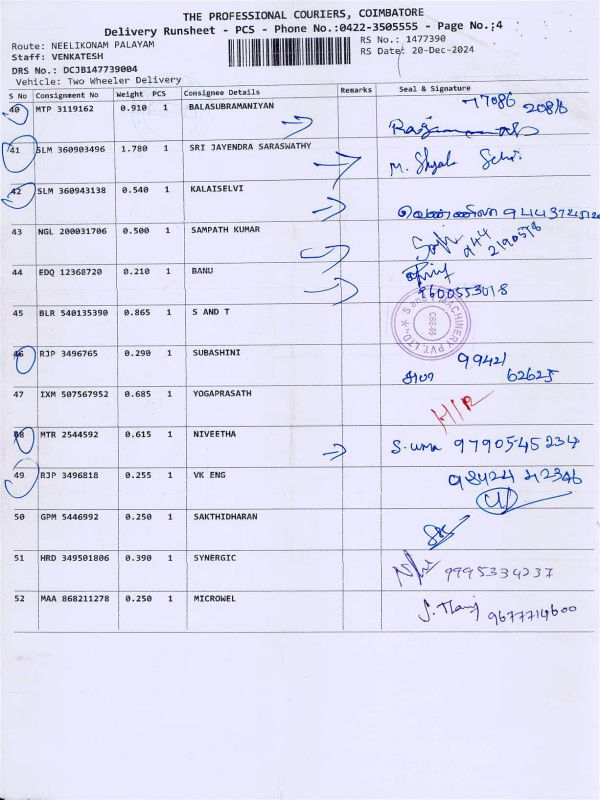 THE PROFESSIONAL COURIERS, COIMBATORE
Delivery Runsheet - PCS - Phone No.:0422-3505555 - Page No.:4
Route: NEELIKONAM PALAYAM RS No.: 1477390
Staff: VENKATESH RS Date: 20-Dec-2024
DRS No.: DCJB147739004
Vehicle: Two Wheeler Delivery
S No Consignment No Weight PCS Consignee Details Remarks Seal & Signature
40 MTP 3119162 0.910 1 BALASUBRAMANIYAN
41 SLM 360903496 1.780 1 SRI JAYENDRA SARASWATHY
42 SLM 360943138 0.540 1 KALAISELVI
43 NGL 200031706 0.500 1 SAMPATH KUMAR
44 EDQ 12368720 0.210 1 BANU
9600553018
45 BLR 540135390 0.865 1 S AND T
MACHINERY PVT. LTD.
CBE-05
46 RJP 3496765 0.290 1 SUBASHINI
99421
62625
47 IXM 507567952 0.685 1 YOGAPRASATH
48 MTR 2544592 0.615 1 NIVEETHA
S. uma 9790545234
49 RJP 3496818 0.255 1 VK ENG
98424 42346
50 GPM 5446992 0.250 1 SAKTHIDHARAN
51 HRD 349501806 0.390 1 SYNERGIC
9995334237
52 MAA 868211278 0.250 1 MICROWEL
9677714600